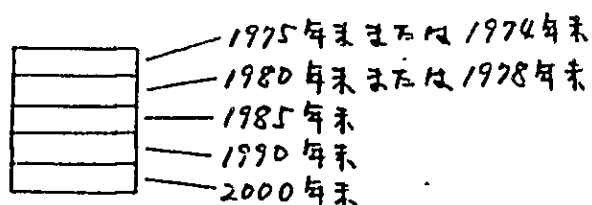 1975年末または1974年末
1980年末または1978年末
1985年末
1990年末
2000年末